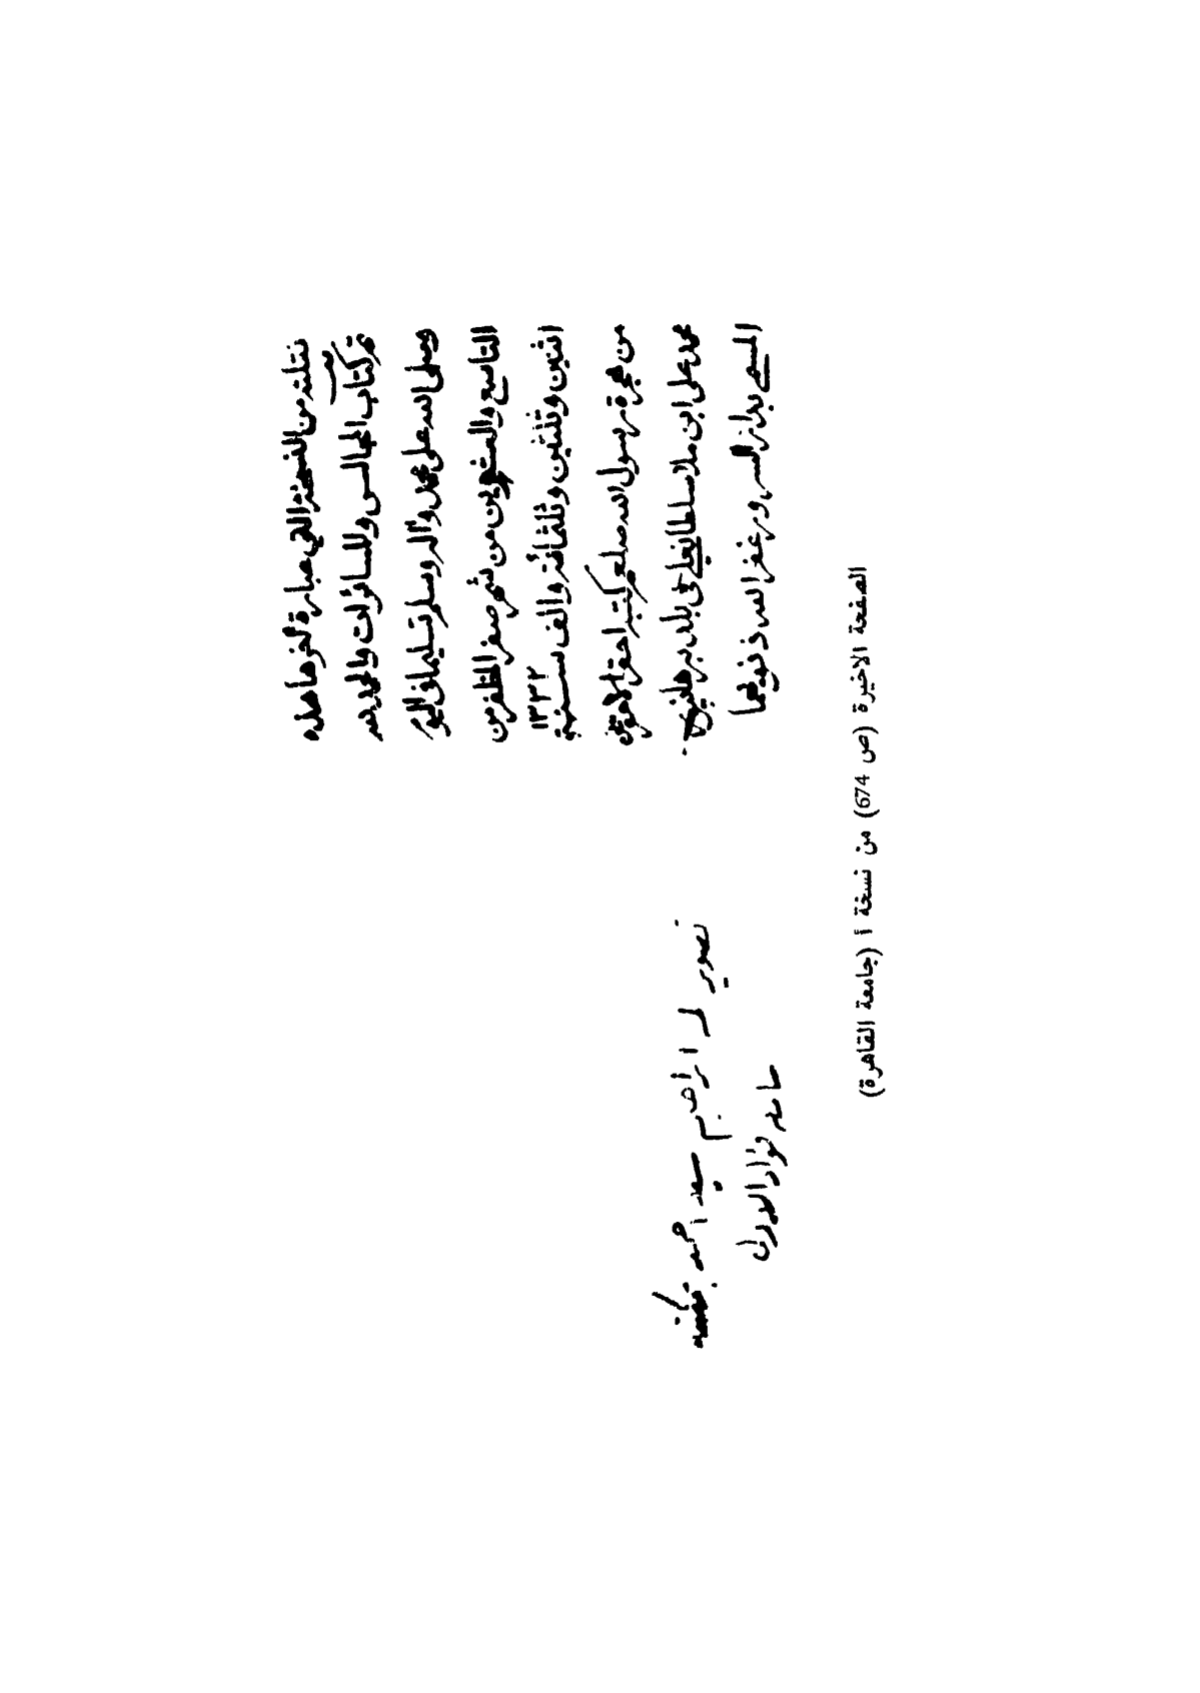 نقلته من النسخة التي عبارة آخرها هذه
تم كتاب المجالس والمسائرات والحمد لله
وصلى الله على محمد وآله وسلم تسليما في اليوم
التاسع والعشرين من شهر صفر المظفر من
اثنين وثلثين وثلثمائة والف سنة ١٣٣٢
من هجرة رسول الله صلعم كتبه احقر
محمد علي ابن ملا سلطانعلي في بلد برهانپور
المسمى بدار السرور غفر الله ذنوبهما
تصوير لـ ابراهيم سيد احمد
جامعة فؤاد الاول
الصفحة الاخيرة (ص 674) من نسخة أ (جامعة القاهرة)